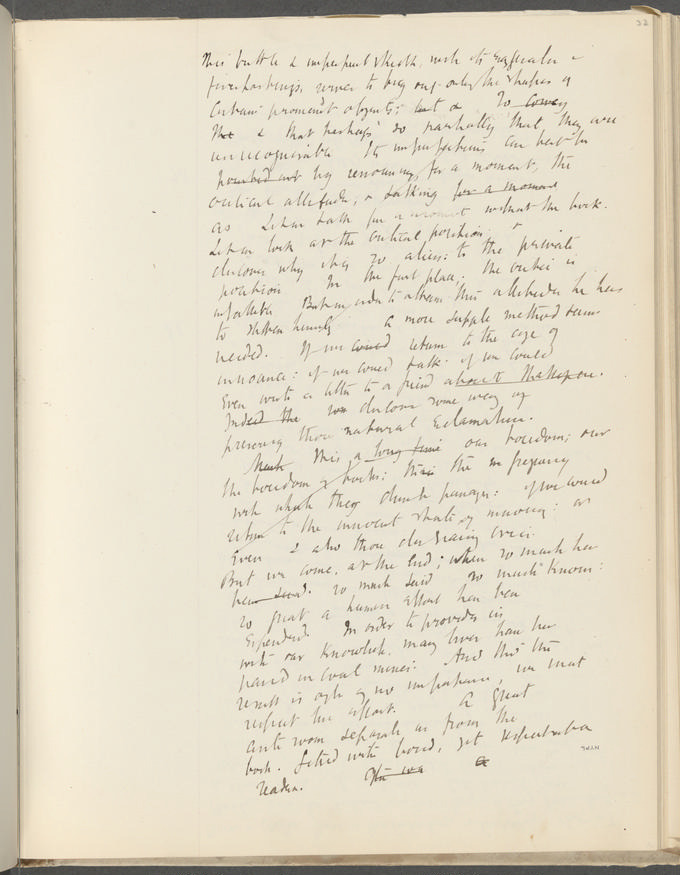 32
This brittle & imperfect sketch, with its &
serves to bring out only the shapes of
certain prominent objects; but & To convey
The & that perhaps so partially that they are
unrecognisable Its imperfections can best be
by renouncing, for a moment, the
critical attitude, & talking for a moment
as Let us talk for a moment without the book.
Let us look at the critical position &
discover why it is so alien to the private
position In the first place, the critic is
infallible But in order to attain this attitude he has
to stiffen himself a more supple method seems
needed. If we could return to the age of
innocence: if we could talk: if we could
Even write a letter to a friend about Shakespeare.
Indeed the we discover some way of
preserving those natural exclamations.
This a long time our boredom; our
the boredom of books: the frequency
with which they passages: if we could
return to the innocent state of : or
Even & also those
But we come, at the End; when so much has
been said. so much said so much known:
so great a human effort has been
Expended. In order to provide us
with our knowledge, many lives have been
passed in coal mines. And tho' the
result is of no importance, we must
respect the effort. A great
ante room separates us from the
book. filled with bored, yet
reader. This was a
NYPL